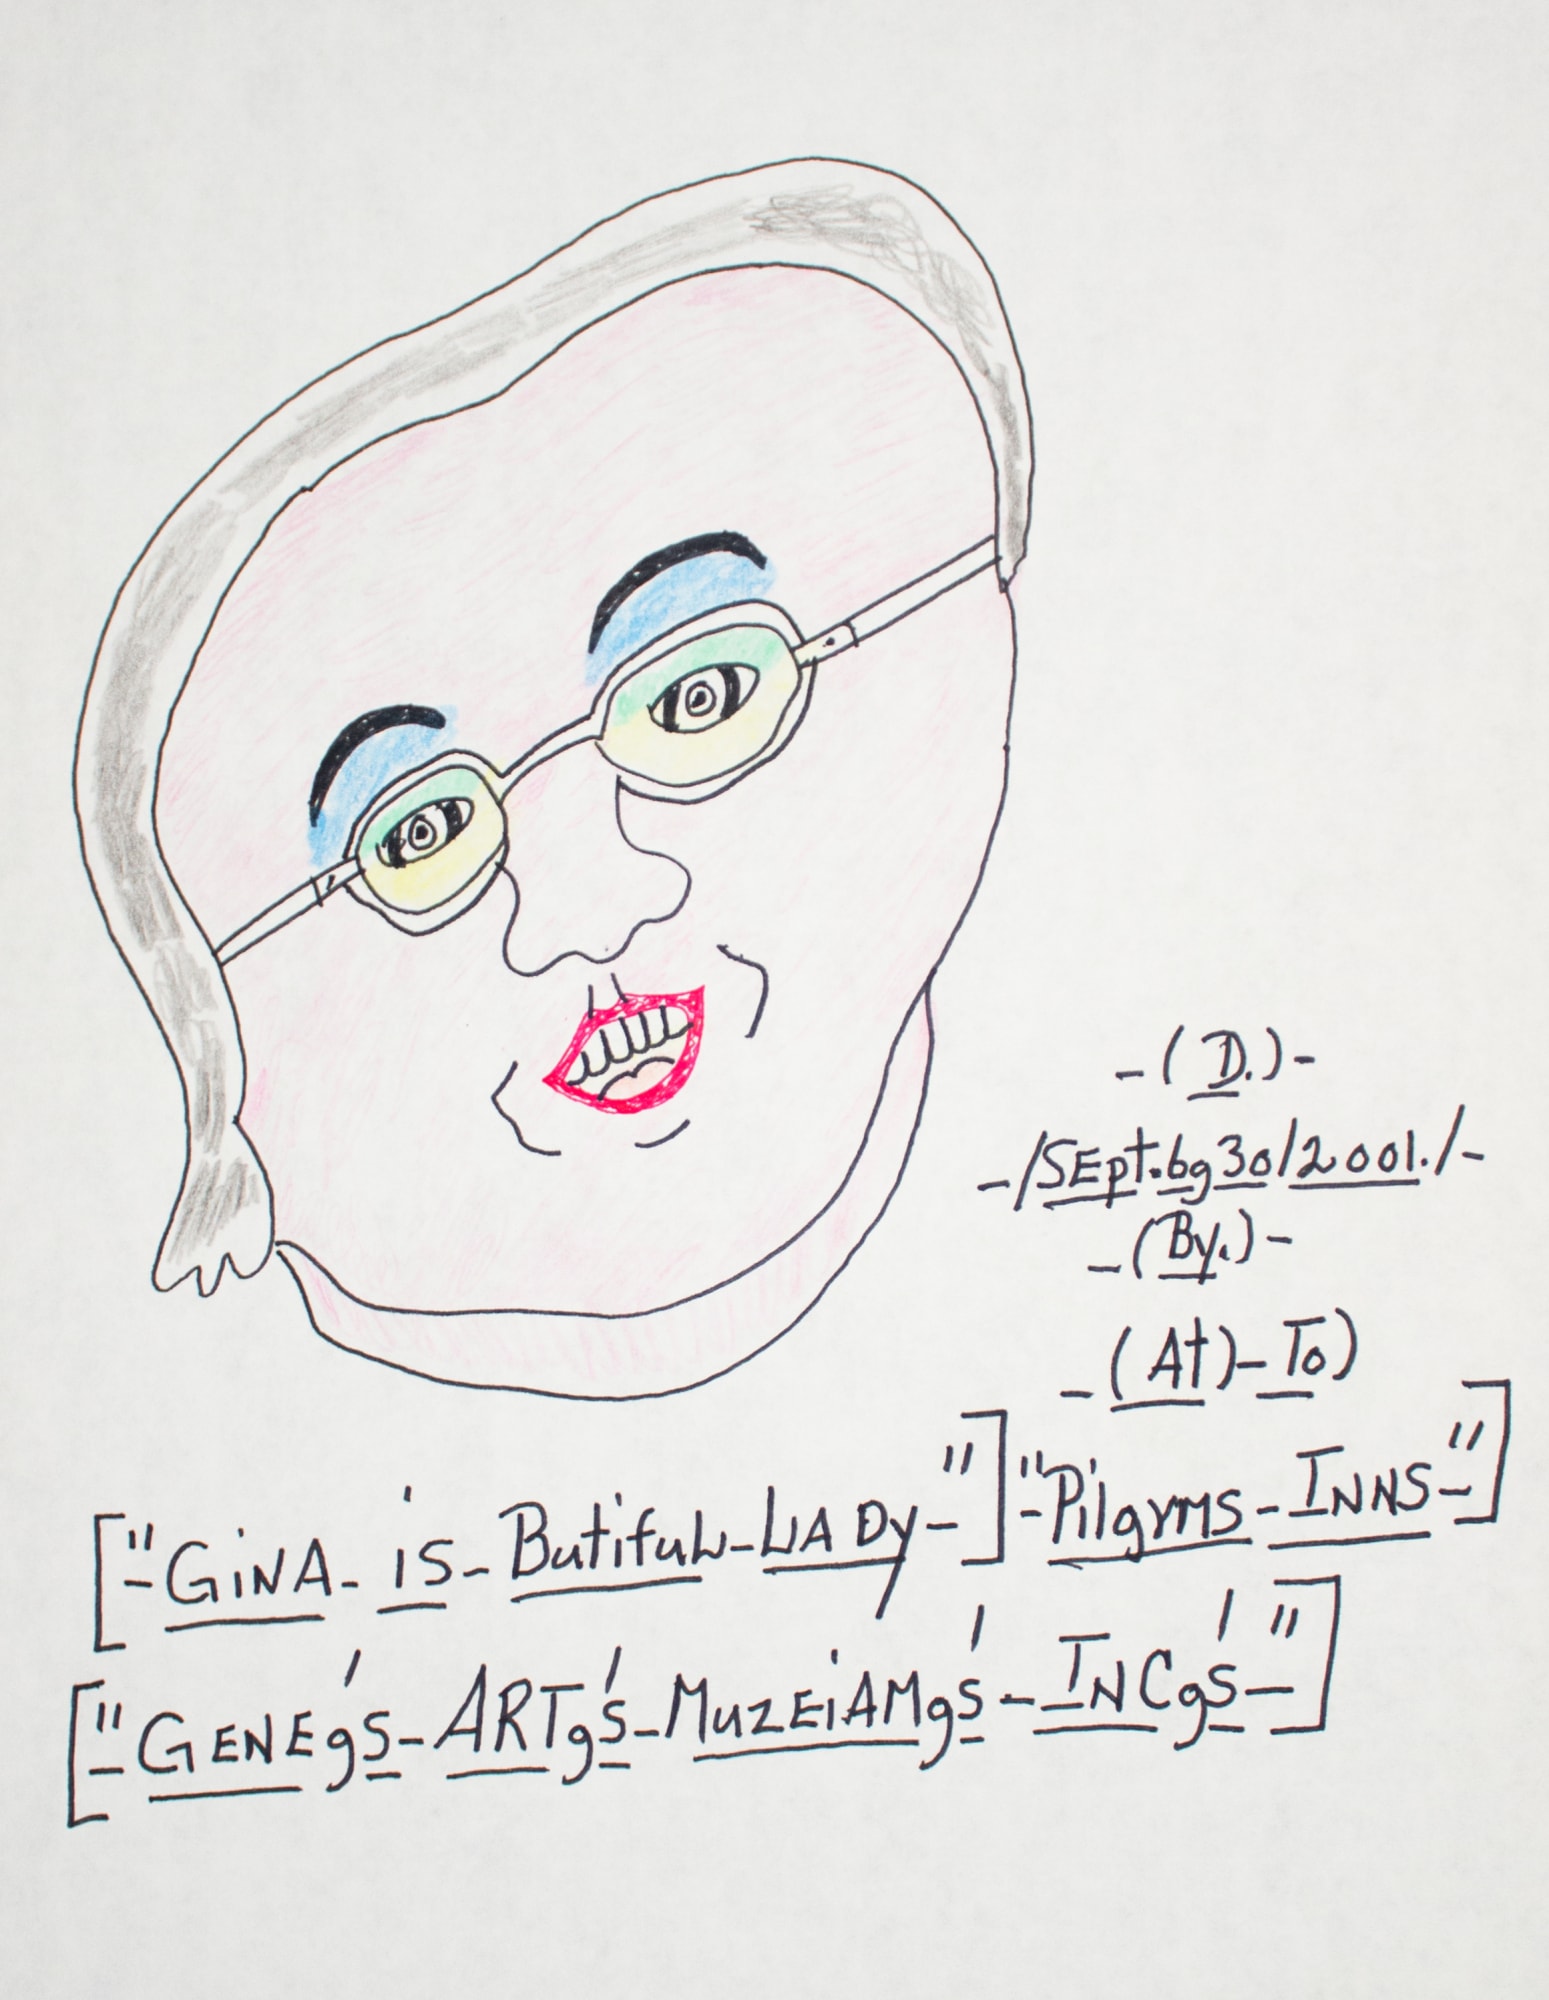 -(D.)-
-/SEpt.bg30/2001./-
-(By.)-
-(At)-To)
["-GiNA-iS-ButifuL-LADy-"]"-PilgrMS-INNS-"]
["-GENEg'S-ARTg'S-MuzEiAMg'S-INCg'S-"]